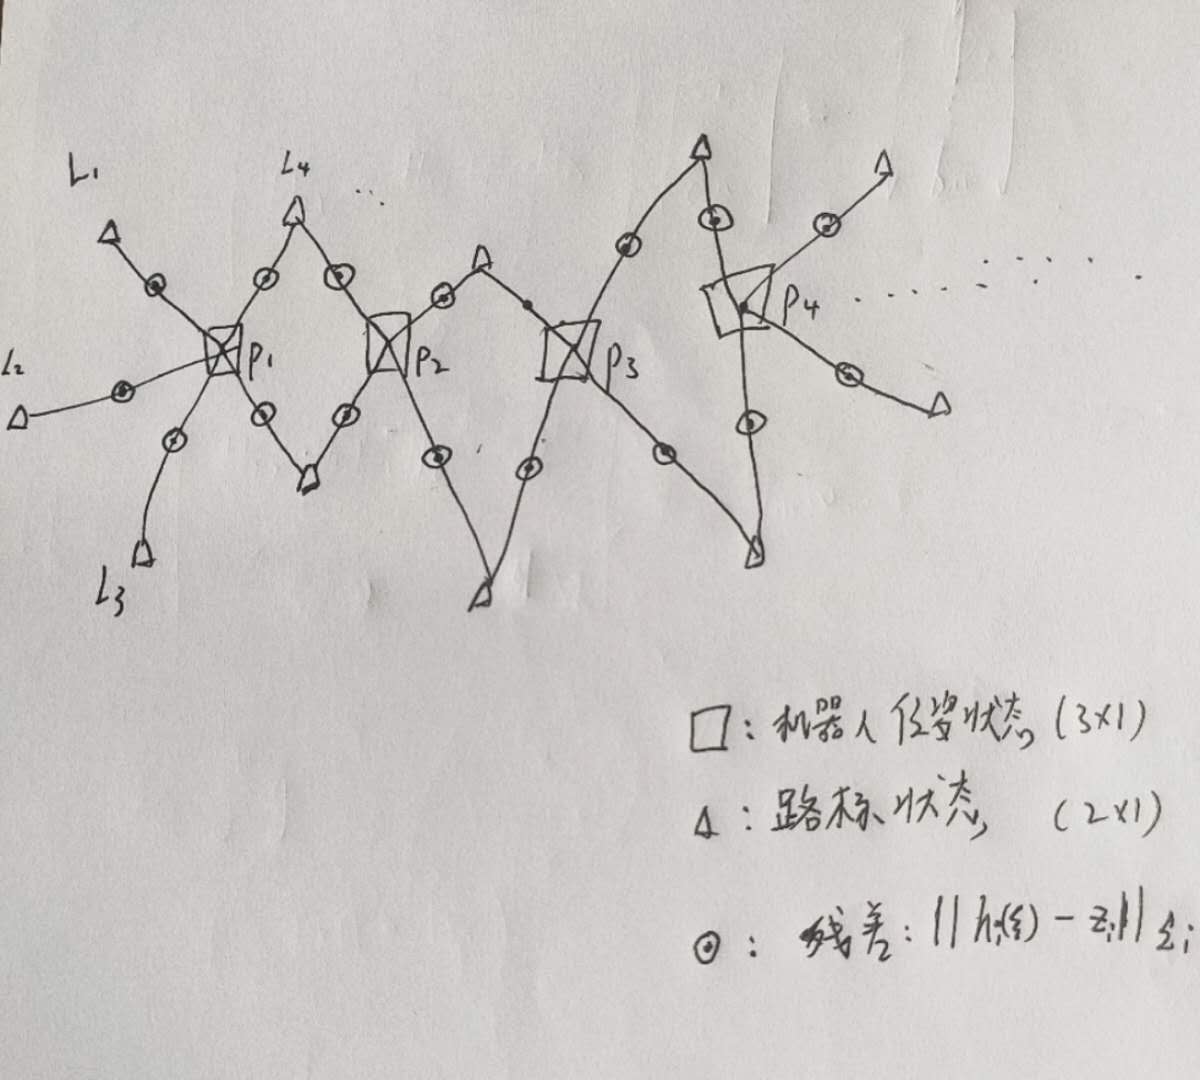 L1
L4
L2
P1
P2
P3
P4
L3
□: 机器人位姿状态 (3×1)
△: 路标状态 (2×1)
⊙: 残差: || hi(ξ) - zi || Σi